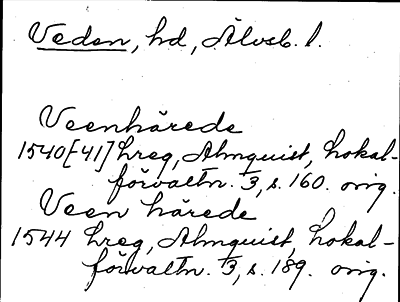 Veden, hd, Älvsb. l.
Veenhärede
1540[-41] hreg, Almquist, Lokal-
förvaltn. 3, s. 160. orig.
Veen härede
1544 hreg, Almquist, Lokal-
förvaltn. 3, s. 189. orig.